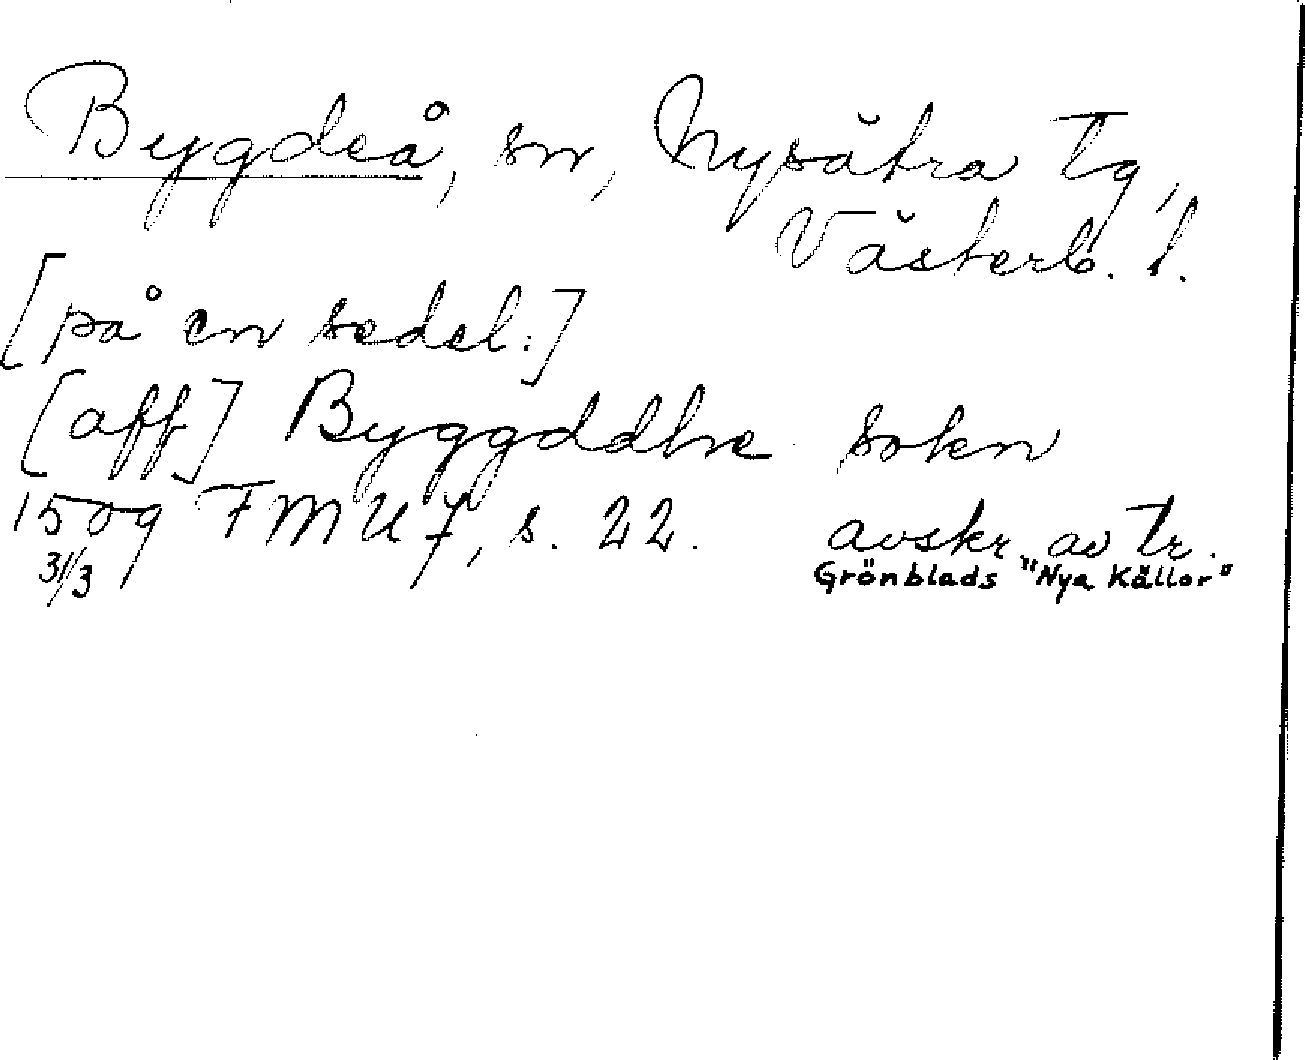 Bygdeå, sn, Nysätra tg,
Västerb. l.
[på en sedel:]
[aff] Byggddhe sokn
1509 FMU 7, s. 22. avskr. av tr.
31/3 Grönblads "Nya Källor"